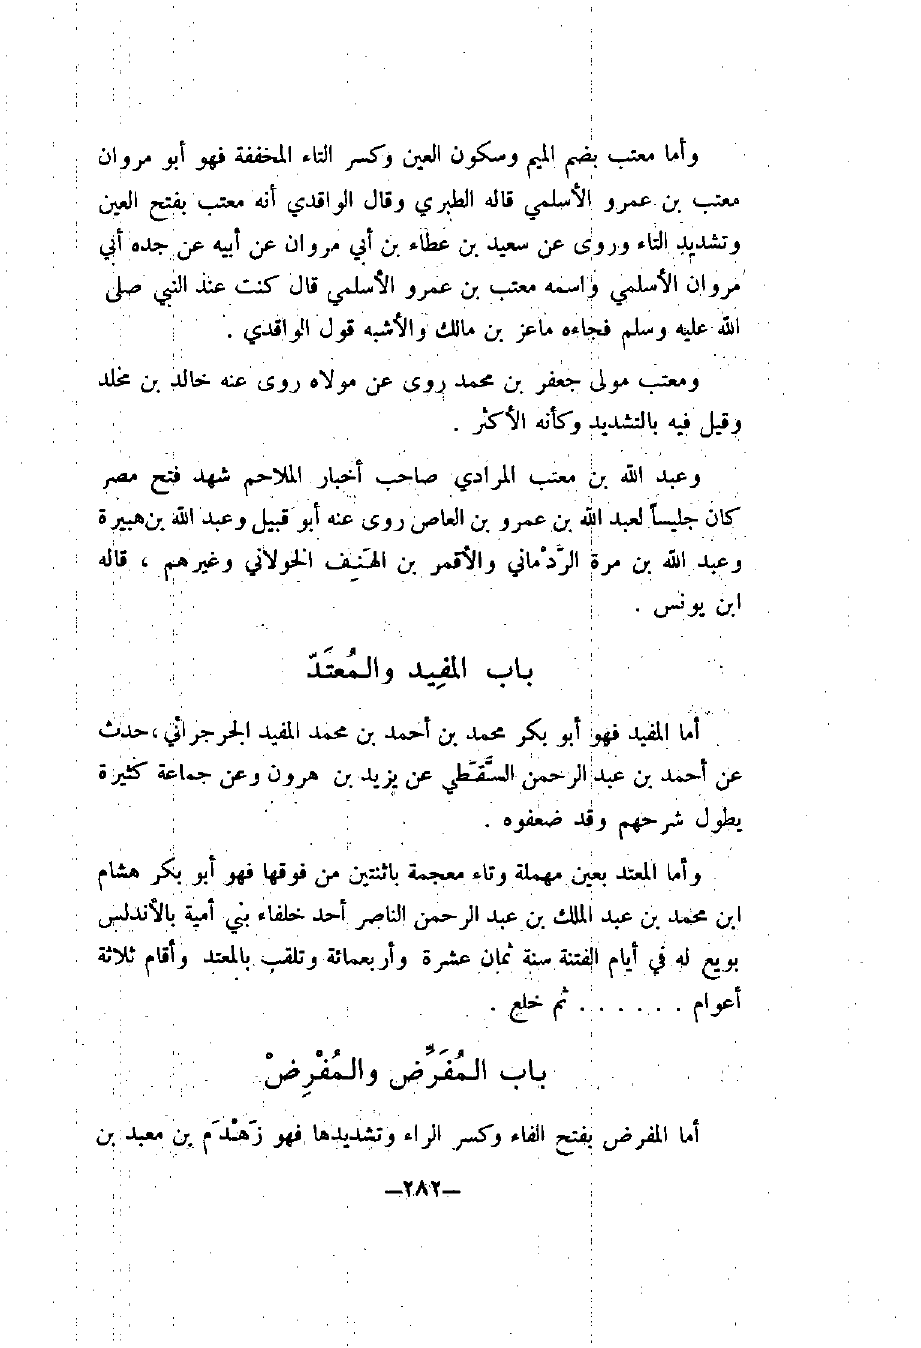 وأما معتب بضم الميم وسكون العين وكسر التاء المخففة فهو أبو مروان
معتب بن عمرو الأسلمي قاله الطبري وقال الواقدي أنه معتب بفتح العين
وتشديد التاء وروى عن سعيد بن عطاء بن أبي مروان عن أبيه عن جده أبي
مروان الأسلمي واسمه معتب بن عمرو الأسلمي قال كنت عند النبي صلى
الله عليه وسلم فجاءه ماعز بن مالك والأشبه قول الواقدي .
ومعتب مولى جعفر بن محمد روى عن مولاه روى عنه خالد بن مخلد
وقيل فيه بالتشديد وكأنه الأكثر .
وعبد الله بن معتب المرادي صاحب أخبار الملاحم شهد فتح مصر
كان جليساً لعبد الله بن عمرو بن العاص روى عنه أبو قبيل وعبد الله بن هبيرة
وعبد الله بن مرة الرَّدْماني والأقمر بن الهَنِيف الخولاني وغيرهم ، قاله
ابن يونس .
باب المفِيد والمُعتَدّ
أما المفيد فهو أبو بكر محمد بن أحمد بن محمد المفيد الجرجرائي ، حدث
عن أحمد بن عبد الرحمن السَّقَطي عن يزيد بن هرون وعن جماعة كثيرة
يطول شرحهم وقد ضعفوه .
وأما المعتد بعين مهملة وتاء معجمة باثنتين من فوقها فهو أبو بكر هشام
ابن محمد بن عبد الملك بن عبد الرحمن الناصر أحد خلفاء بني أمية بالأندلس
بويع له في أيام الفتنة سنة ثمان عشرة وأربعمائة وتلقب بالمعتد وأقام ثلاثة
أعوام . . . . . . ثم خلع .
باب المُفَرِّض والمُفْرِضْ
أما المفرض بفتح الفاء وكسر الراء وتشديدها فهو زَهْدَم بن معبد بن
—٢٨٢—